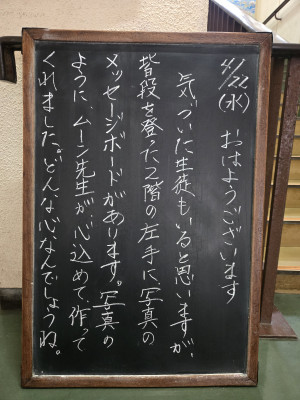 4/22(水) おはようございます
気づいた生徒もいると思いますが、
階段を登った2階の左手に、写真の
メッセージボードがあります。写真の
ように、ムーン先生が、心込めて、作って
くれました。どんな心なんでしょうね。